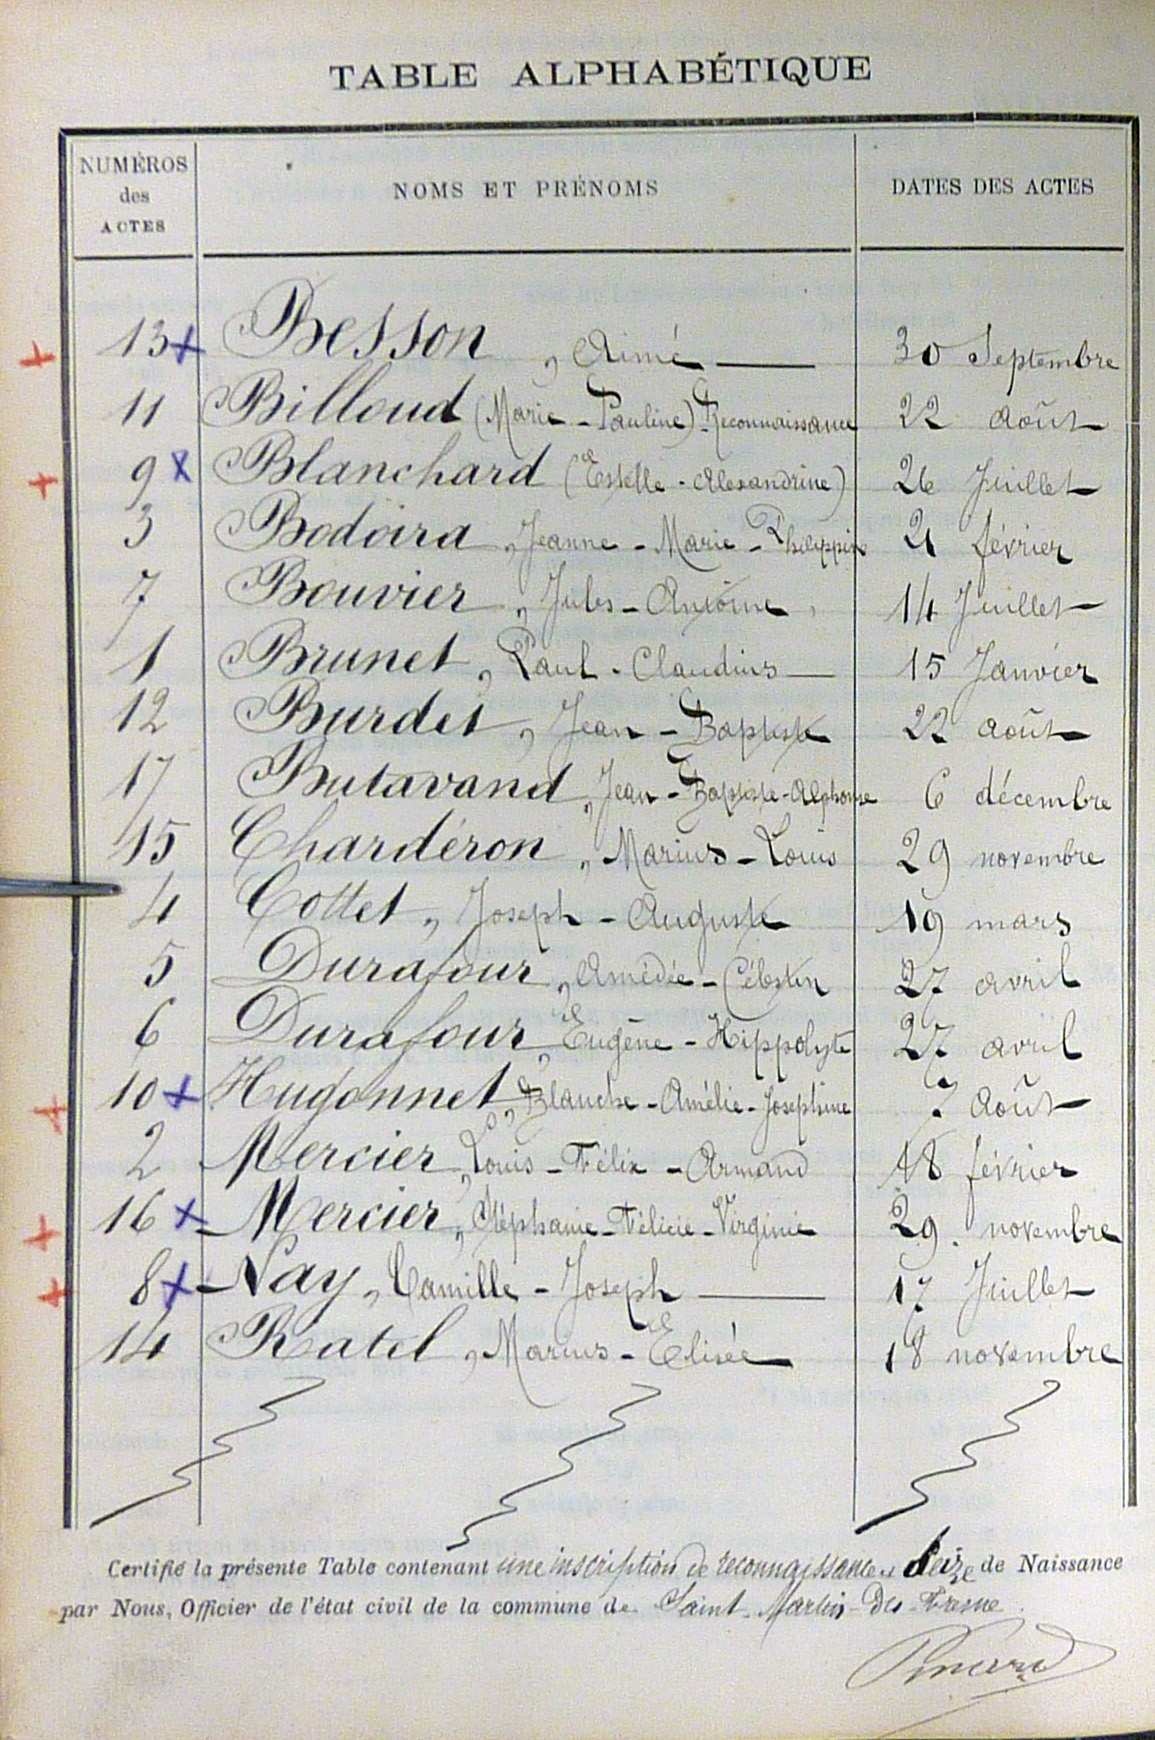 TABLE ALPHABÉTIQUE
NUMÉROS des ACTES NOMS ET PRÉNOMS DATES DES ACTES
13 Besson, Aimé 30 Septembre
11 Billoud (Marie-Pauline) Reconnaissance 22 août
9 Blanchard (Estelle-Alexandrine) 26 Juillet
3 Bodoira, Jeanne-Marie-Philippine 21 février
7 Bouvier, Jules-Antoine 14 Juillet
1 Brunet, Paul-Claudius 15 Janvier
12 Burdet, Jean-Baptiste 22 août
17 Butavand, Jean-Baptiste-Alphonse 6 décembre
15 Chardéron, Marius-Louis 29 novembre
4 Cottet, Joseph-Auguste 19 mars
5 Durafour, Amédée-Célestin 27 avril
6 Durafour, Eugène-Hippolyte 27 avril
10 Hugonnet, Blanche-Amélie-Joséphine 7 Août
2 Mercier, Louis-Félix-Armand 18 février
16 Mercier, Stéphanie-Félicie-Virginie 29 novembre
8 Nay, Camille-Joseph 17 Juillet
14 Ratel, Marius-Elisée 18 novembre
Certifié la présente Table contenant une inscription de reconnaissance et Seize de Naissance
par Nous, Officier de l'état civil de la commune de Saint-Martin-Du-Fresne